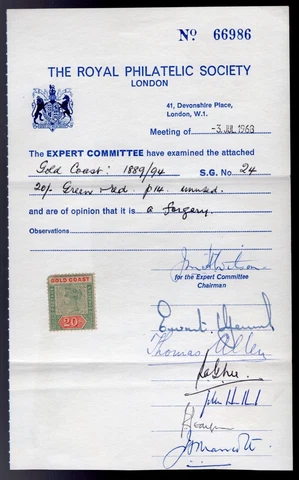 No 66986
THE ROYAL PHILATELIC SOCIETY
LONDON
41, Devonshire Place,
London, W.1.
Meeting of -3 JUL 1968
The EXPERT COMMITTEE have examined the attached
Gold Coast: 1889/94 S.G. No 24
20/- Green & red. p14. unused.
and are of opinion that it is a forgery.
Observations
for the Expert Committee
Chairman
GOLD COAST
20/-
Thomas Allen